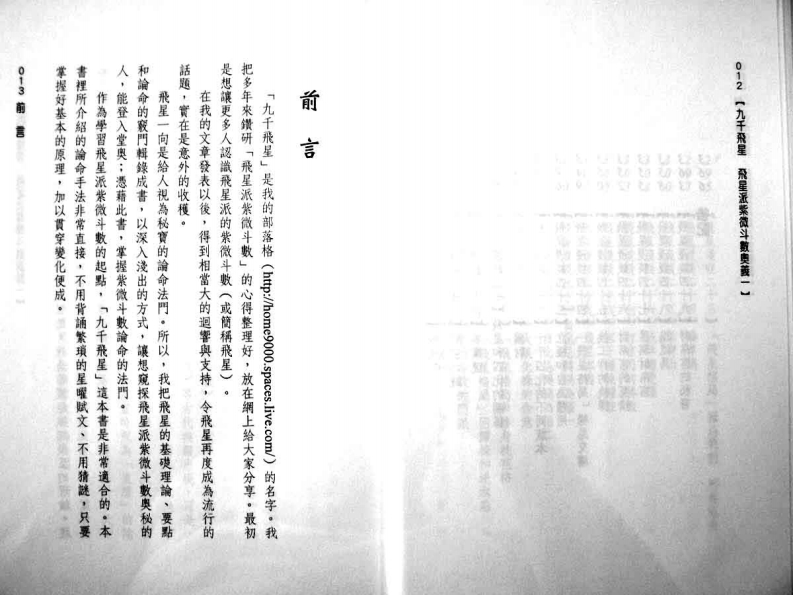 012 【九千飛星 飛星派紫微斗數奧義一】
前言
「九千飛星」是我的部落格（http://home9000.spaces.live.com/）的名字。我
把多年來鑽研「飛星派紫微斗數」的心得整理好，放在網上給大家分享。最初
是想讓更多人認識飛星派的紫微斗數（或簡稱飛星）。
在我的文章發表以後，得到相當大的迴響與支持，令飛星再度成為流行的
話題，實在是意外的收穫。
飛星一向是給人視為秘寶的論命法門。所以，我把飛星的基礎理論、要點
和論命的竅門輯錄成書，以深入淺出的方式，讓想窺探飛星派紫微斗數奧秘的
人，能登入堂奧；憑藉此書，掌握紫微斗數論命的法門。
作為學習飛星派紫微斗數的起點，「九千飛星」這本書是非常適合的。本
書裡所介紹的論命手法非常直接，不用背誦繁瑣的星曜賦文、不用猜謎，只要
掌握好基本的原理，加以貫穿變化便成。
013 前言